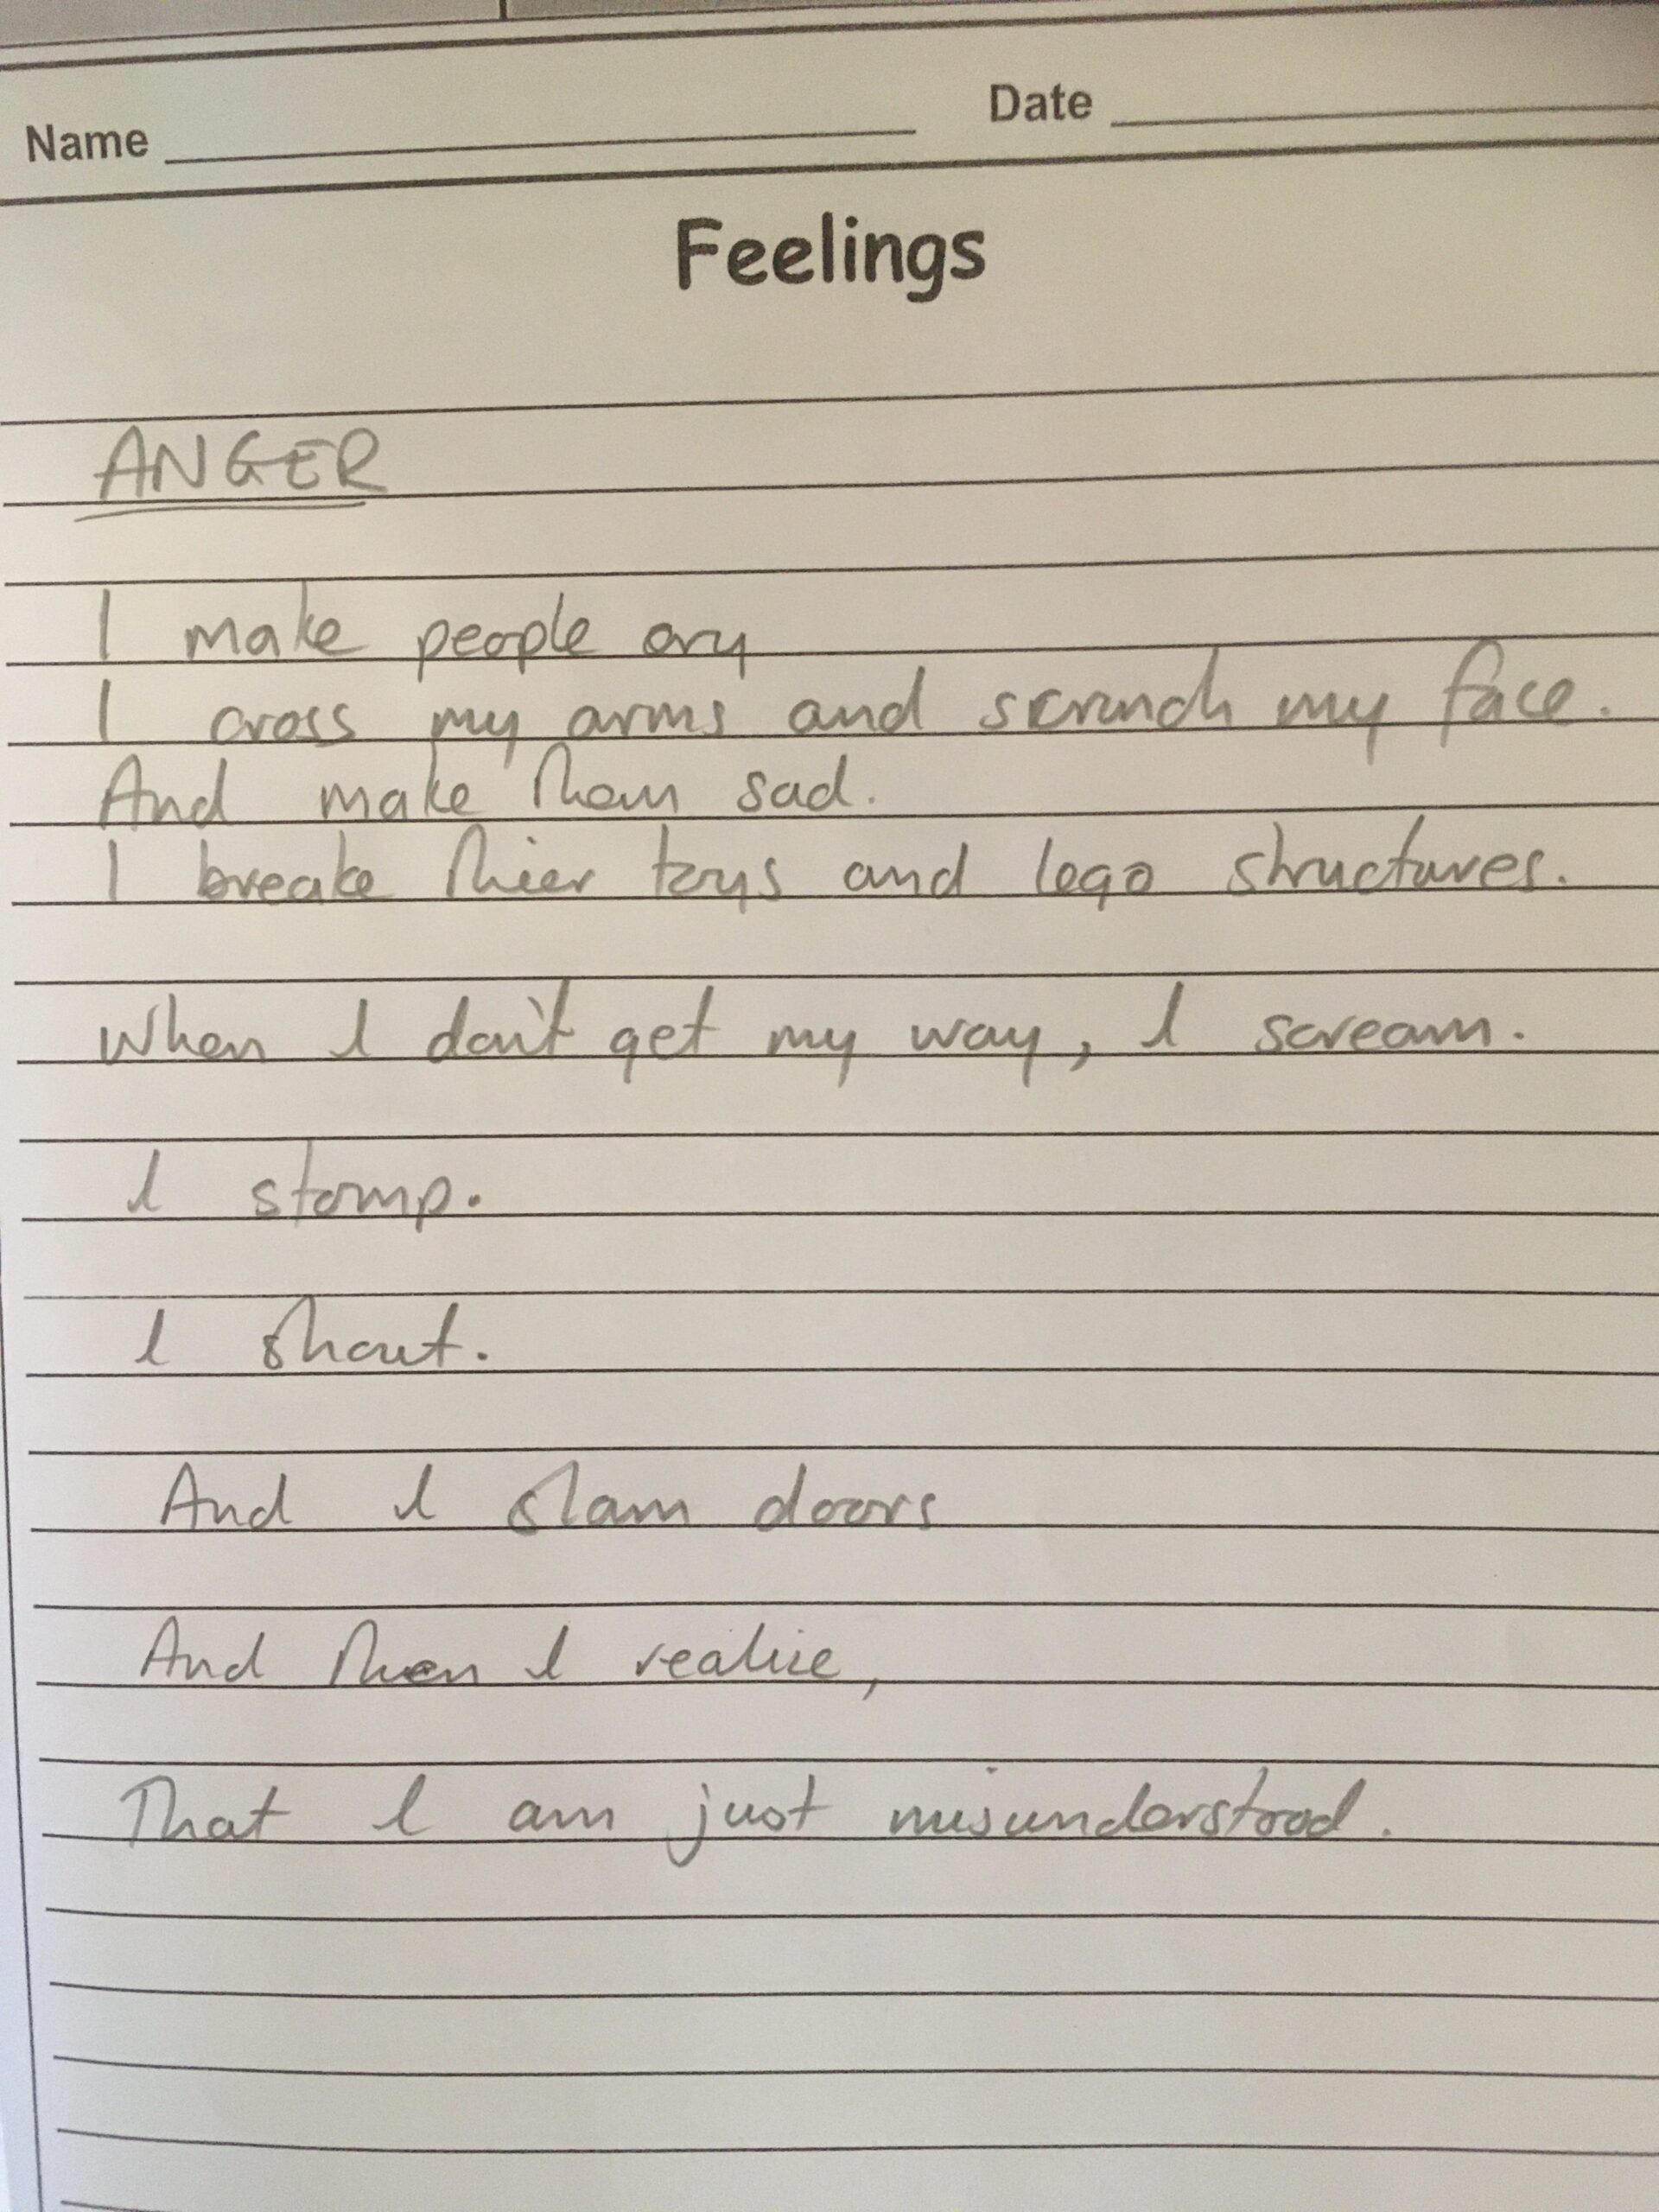 Name Date
Feelings
ANGER
I make people cry
I cross my arms and scrunch my face.
And make them sad.
I breake thier toys and lego structures.
When I don't get my way, I scream.
I stomp.
I shout.
And I slam doors
And then I realize,
That I am just misunderstood.